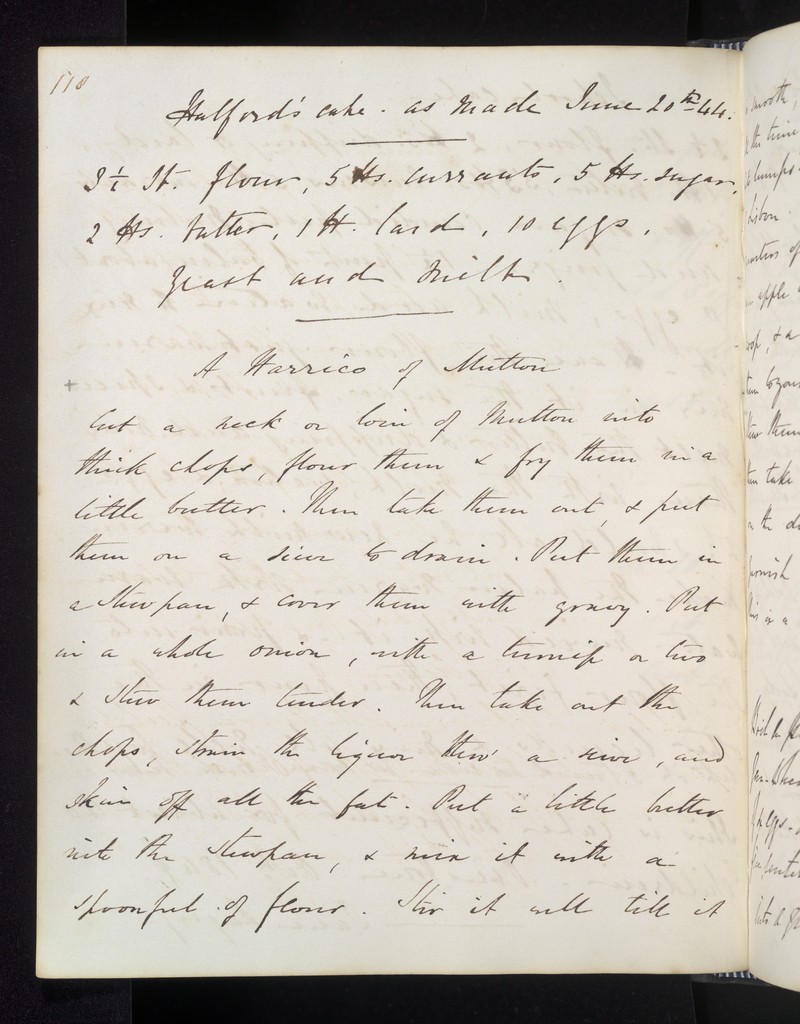 118
Halford's cake - as made June 20th 44.
3½ St. flour, 5 lbs. currants, 5 lbs. sugar,
2 lbs. butter, 1 lb. lard, 10 eggs,
yeast and milk.
A Harrico of Mutton
+
Cut a neck or loin of Mutton into
thick chops, flour them & fry them in a
little butter. Then take them out, & put
them on a sieve to drain. Put them in
a Stewpan, & cover them with gravy. Put
in a whole onion, with a turnip or two
& stew them tender. Then take out the
chops, strain the liquor thro' a sieve, and
skim off all the fat. Put a little butter
into the Stewpan, & mix it with a
spoonful of flour. Stir it well till it
smooth,
the time
lumps
Lisbon
apple
& a
them
take
in a